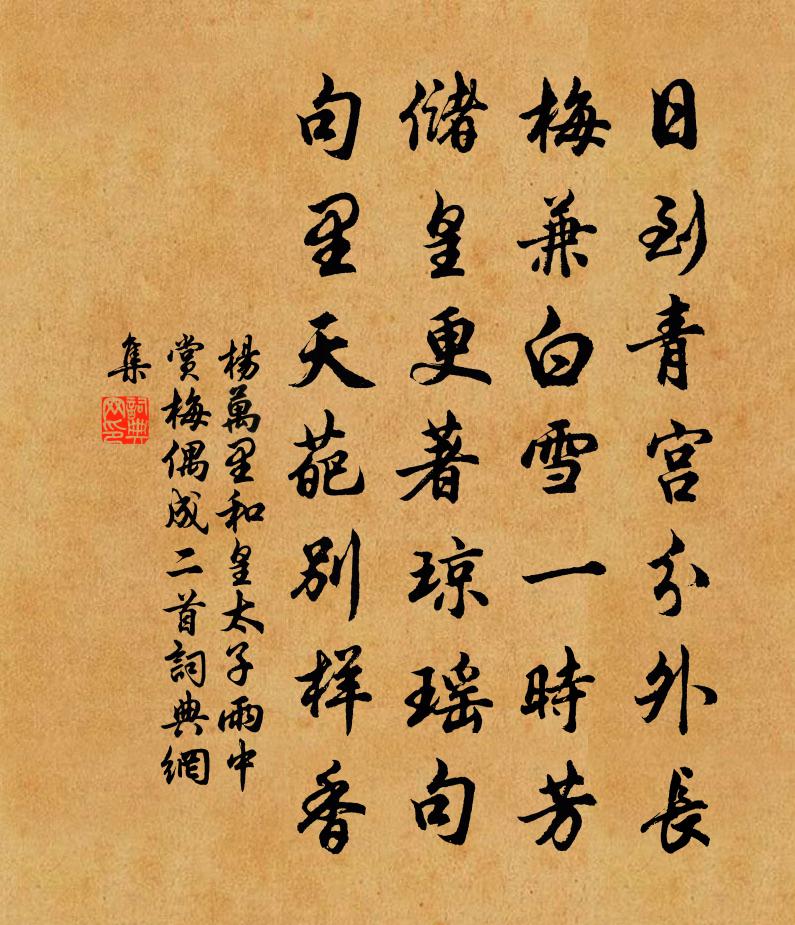 日到青宫分外長
梅兼白雪一時芳
儲皇更著琼瑶句
句里天葩别样香
楊萬里和皇太子雨中
賞梅偶成二首詞典網
集
詞典網印